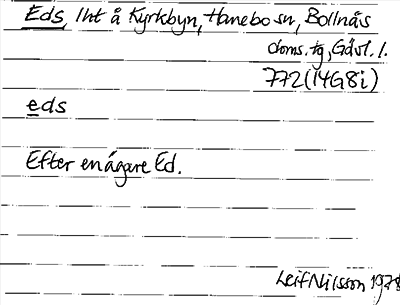 Eds, lht å Kyrkbyn, Hanebo sn, Bollnäs
doms. tg, Gävl. l.
772 (14G8i)
eds
Efter en ägare Ed.
Leif Nilsson 1978